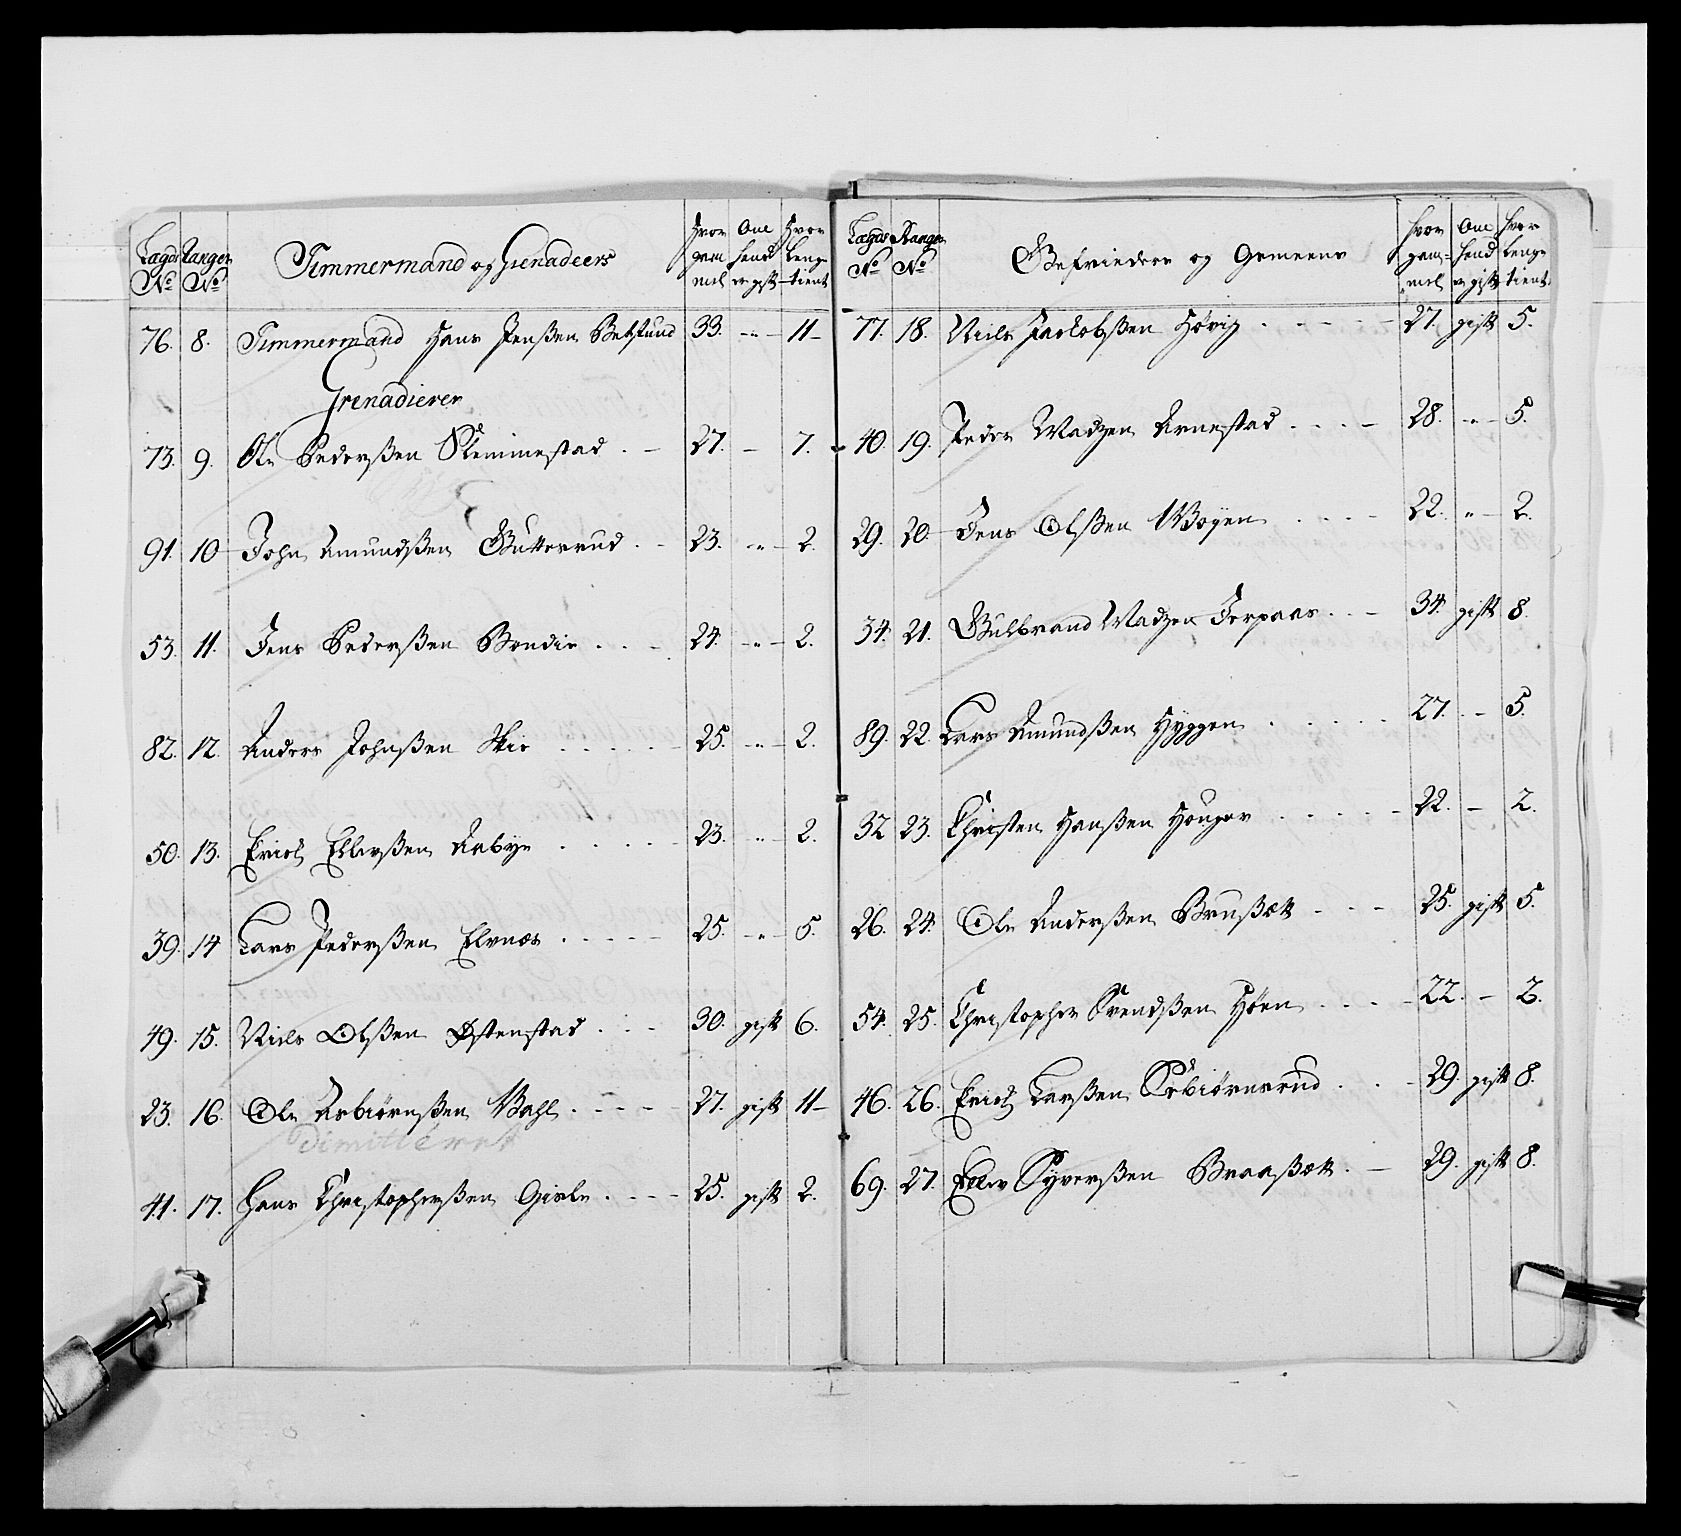 Lægds No Rangen No Timmermand og Grenadeers Hvor gam̄el Om hand er gift Hvor lenge tient
76. 8. Timmermand Hans Jenßen Betstund 33. -"- 11-
Grenadierer
73. 9. Ole Pederßen Slemmestad 27. - 7.
91. 10 John Amundßen Gutterrud 23. -"- 2.
53. 11. Jens Pederßen Bondie 24. -"- 2.
82. 12. Anders Johnßen Skie 25. -"- 2.
50. 13. Erich Ellevßen Aabye 23. -"- 2.
39. 14 Lars Pederßen Elvnæs 25. -"- 5.
49. 15. Niels Olßen Østenstad 30. gift 6.
23. 16. Ole Asbiörnßen Wahl 27. gift 11-
Dimitteret
41. 17. Hans Christopherßen Gisle 25. gift 2.
Lægds No Rangen No Gefriedere og Gemeene hvor gam̄el Om hand er gift hvor lenge tient
77. 18. Niels Jackobßen Hövig 27. gift 5.
40. 19. Peder Madzen Arnestad 28. -"- 5.
29. 20. Jens Olßen Woyen 22. " - 2.
34. 21. Gulbrand Madzen Jerpaas 34. gift 8.
89. 22. Lars Amundßen Hyggen 27. - 5.
32 23. Christen Hanßen Houger 22. - 2.
26. 24. Ole Anderßen Brußæt 25. gift 5.
54. 25. Christopher Svendßen Höen 22. - 2.
46. 26. Erich Larßen Torbiörnsrud 29. gift 8.
69. 27. Ellev Syverßen Braaßæt 29. gift 8.